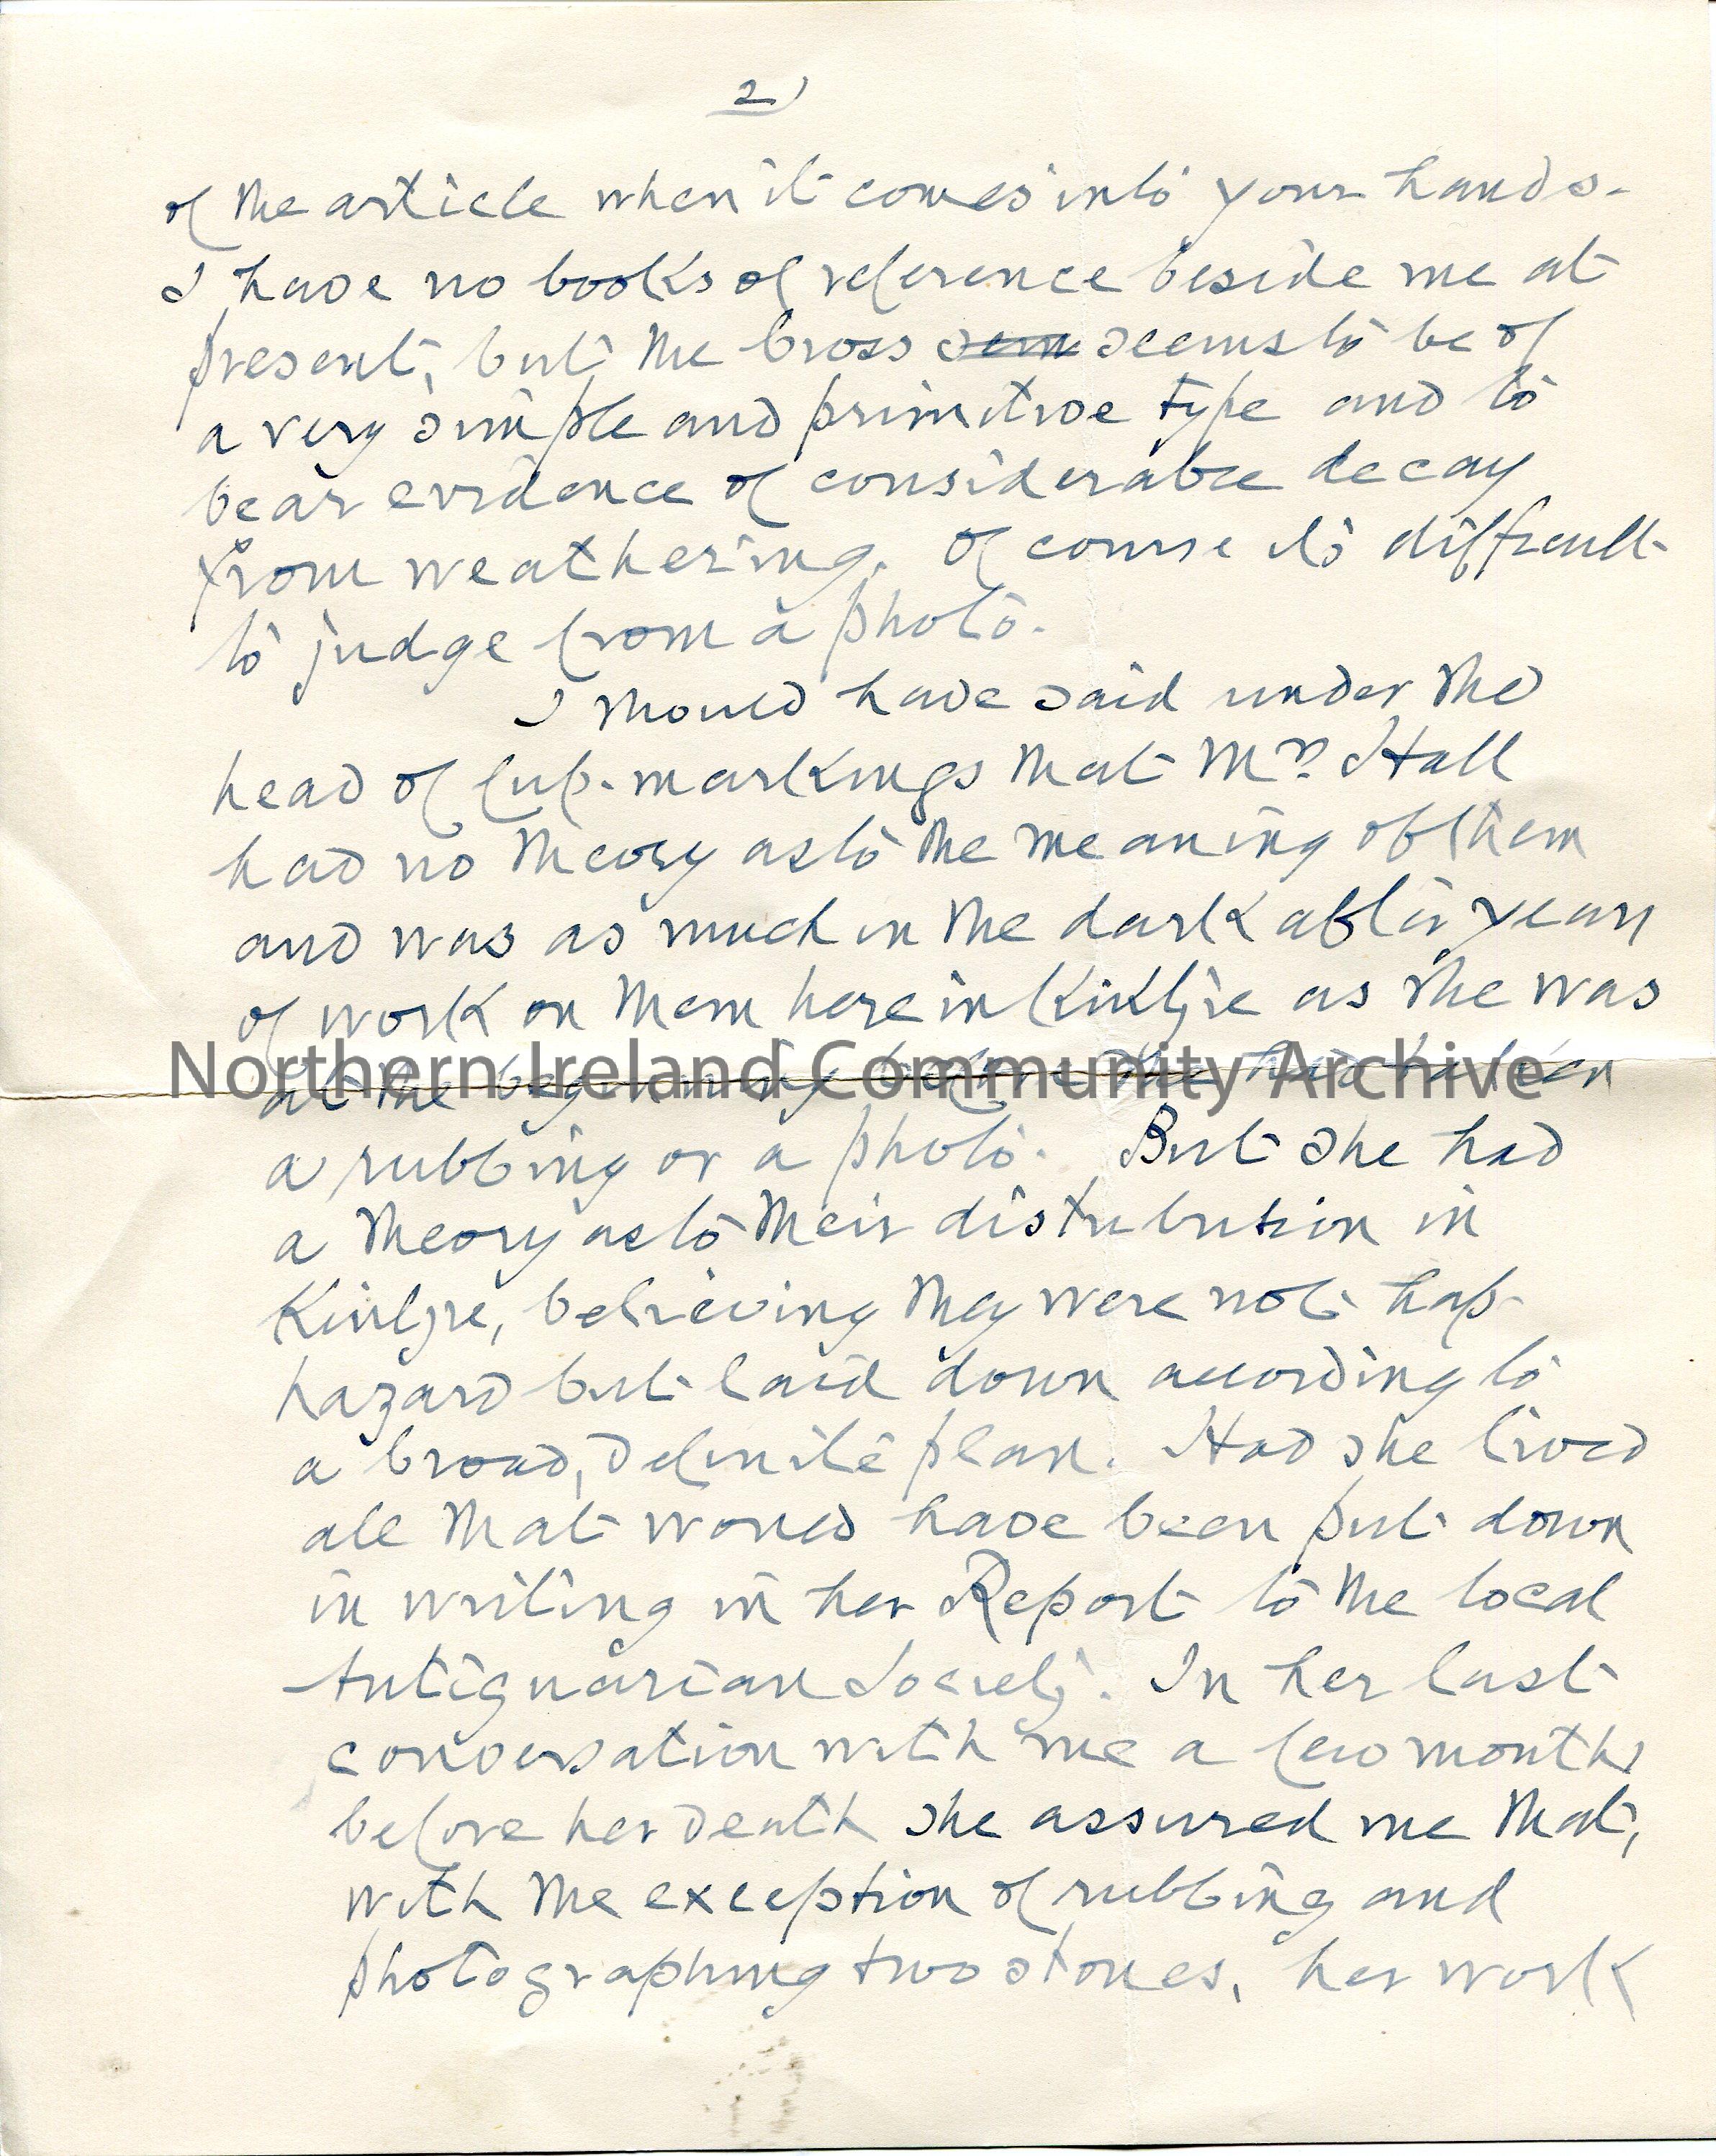 2)
of the article when it comes into your hands.
I have no books of reference beside me at
present, but the Cross sem seems to be of
a very simple and primitive type and to
bear evidence of considerable decay
from weathering. Of course it is difficult
to judge from a photo.
I should have said under the
head of Cup-markings that Mrs Hall
had no theory as to the meaning of them
and was as much in the dark after years
of work on them here in Kintyre as she was
at the beginning before she had taken
Northern Ireland Community Archive
a rubbing or a photo. But she had
a theory as to their distribution in
Kintyre, believing they were not hap-
hazard but laid down according to
a broad, definite plan. Had she lived
all that would have been put down
in writing in her Report to the local
Antiquarian Society. In her last
conversation with me a few months
before her death she assured me that,
with the exception of rubbing and
photographing two stones, her work